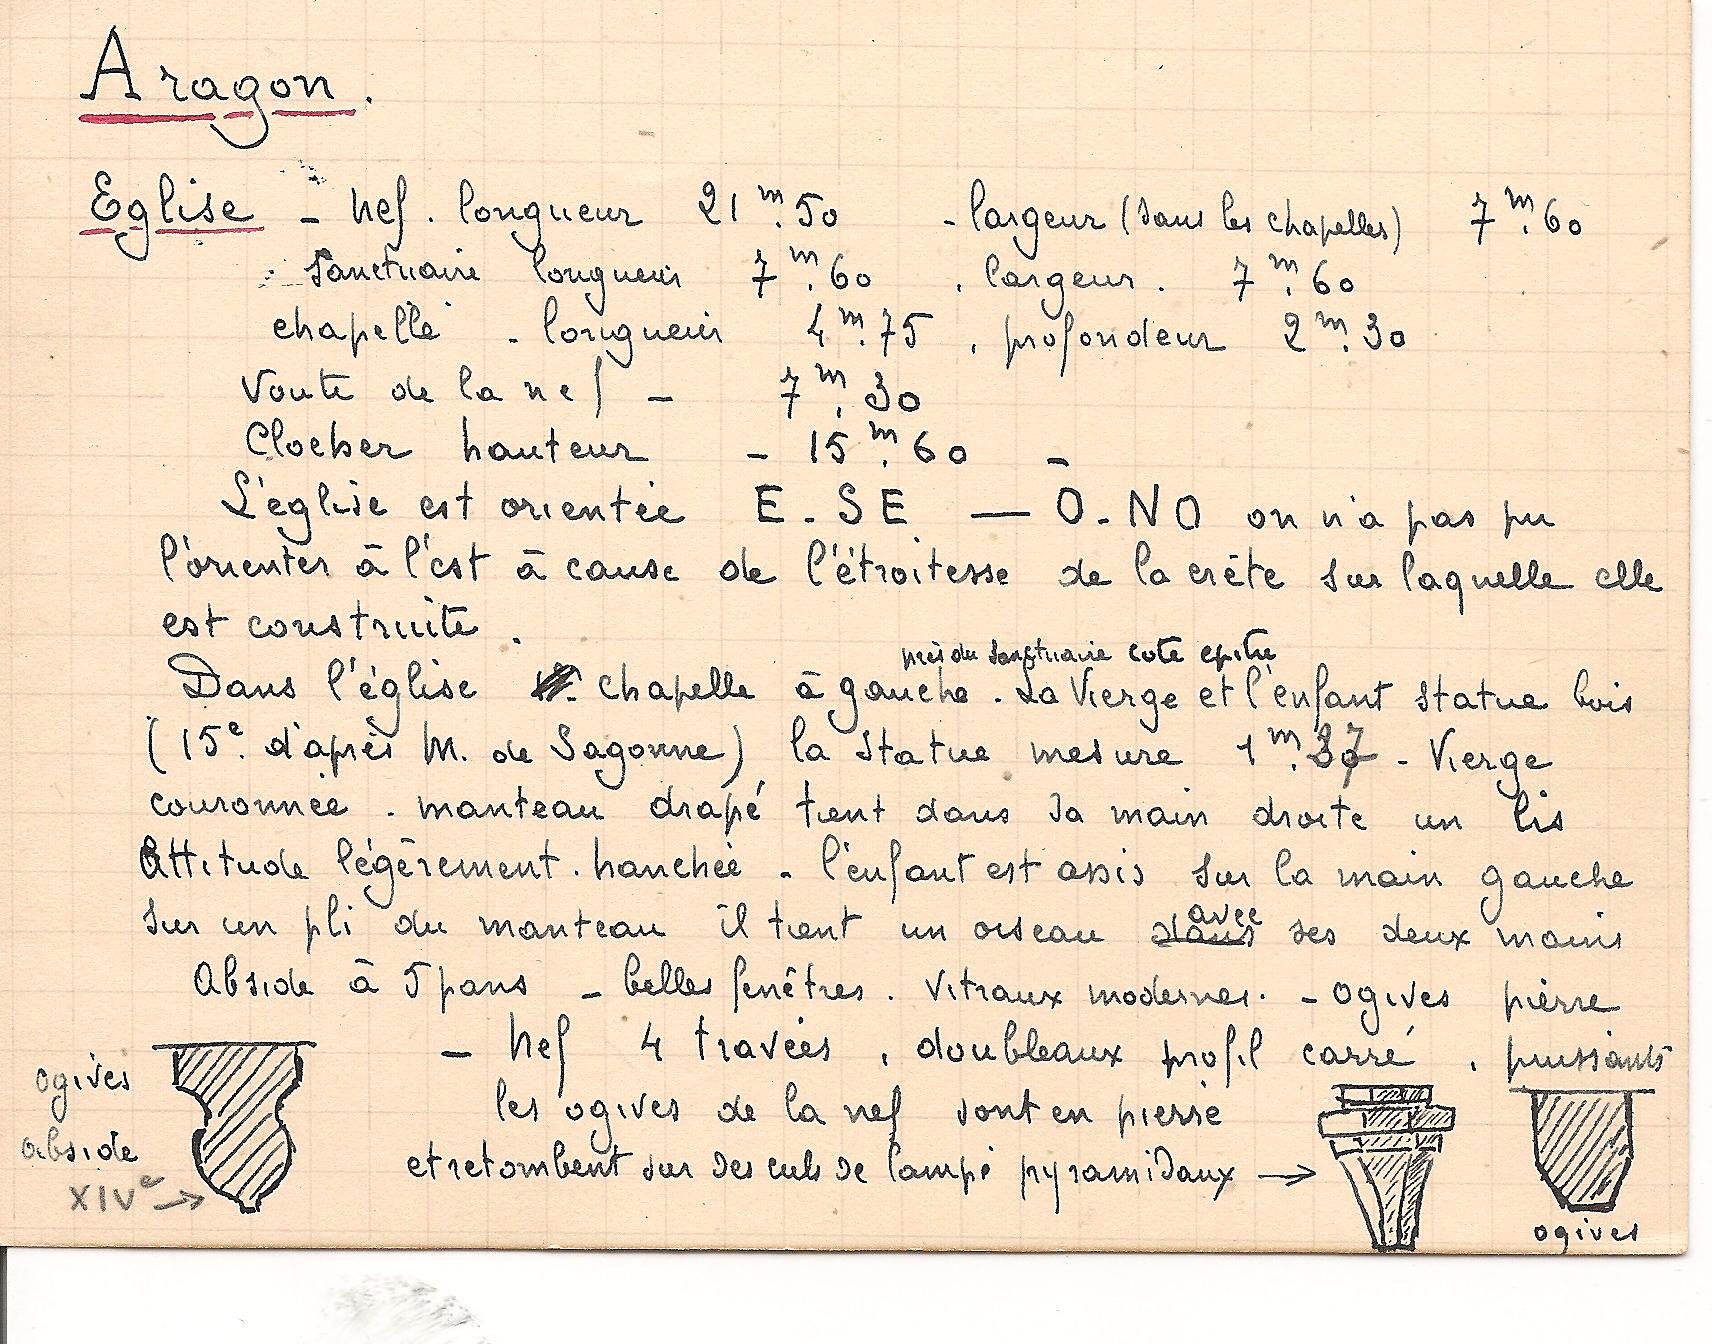 Aragon.
Eglise - Nef. longueur 21m.50 - largeur (sans les chapelles) 7m.60
Sanctuaire longueur 7m.60 . largeur. 7m.60
chapelle - longueur 4m.75 , profondeur 2m.30
Voute de la nef - 7m.30
Clocher hauteur - 15m.60 -
L'église est orientée E-SE — O-NO on n'a pas pu
l'orienter à l'est à cause de l'étroitesse de la crête sur laquelle elle
est construite.
près du Sanctuaire coté epitre
Dans l'église chapelle à gauche. La Vierge et l'enfant statue bois
(15e. d'après M. de Sagonne) la statue mesure 1m.37 - Vierge
couronnée. manteau drapé tient dans sa main droite un lis
Attitude légèrement. hanchée - l'enfant est assis sur la main gauche
sur un pli du manteau il tient un oiseau dans avec ses deux mains
Abside à 5 pans - belles fenêtres. Vitraux modernes. - ogives pierre
- Nef 4 travées , doubleaux profil carré , puissants
les ogives de la nef sont en pierre
et retombent sur des culs de lampe pyramidaux →
ogives
abside
XIVe →
ogives